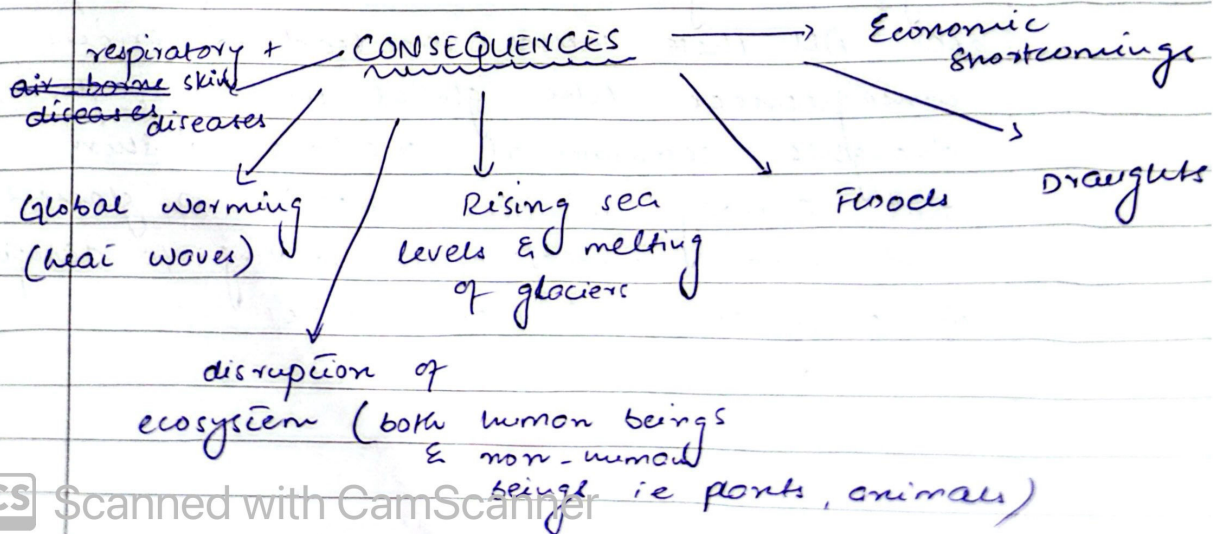 CONSEQUENCES
respiratory +
air borne skin
diseases diseases
Economic
Shortcomings
Global warming
(heat waves)
Rising sea
levels & melting
of glaciers
Floods
Draughts
disruption of
ecosystem (both human beings
& non-human
beings ie plants, animals)
CS Scanned with CamScanner